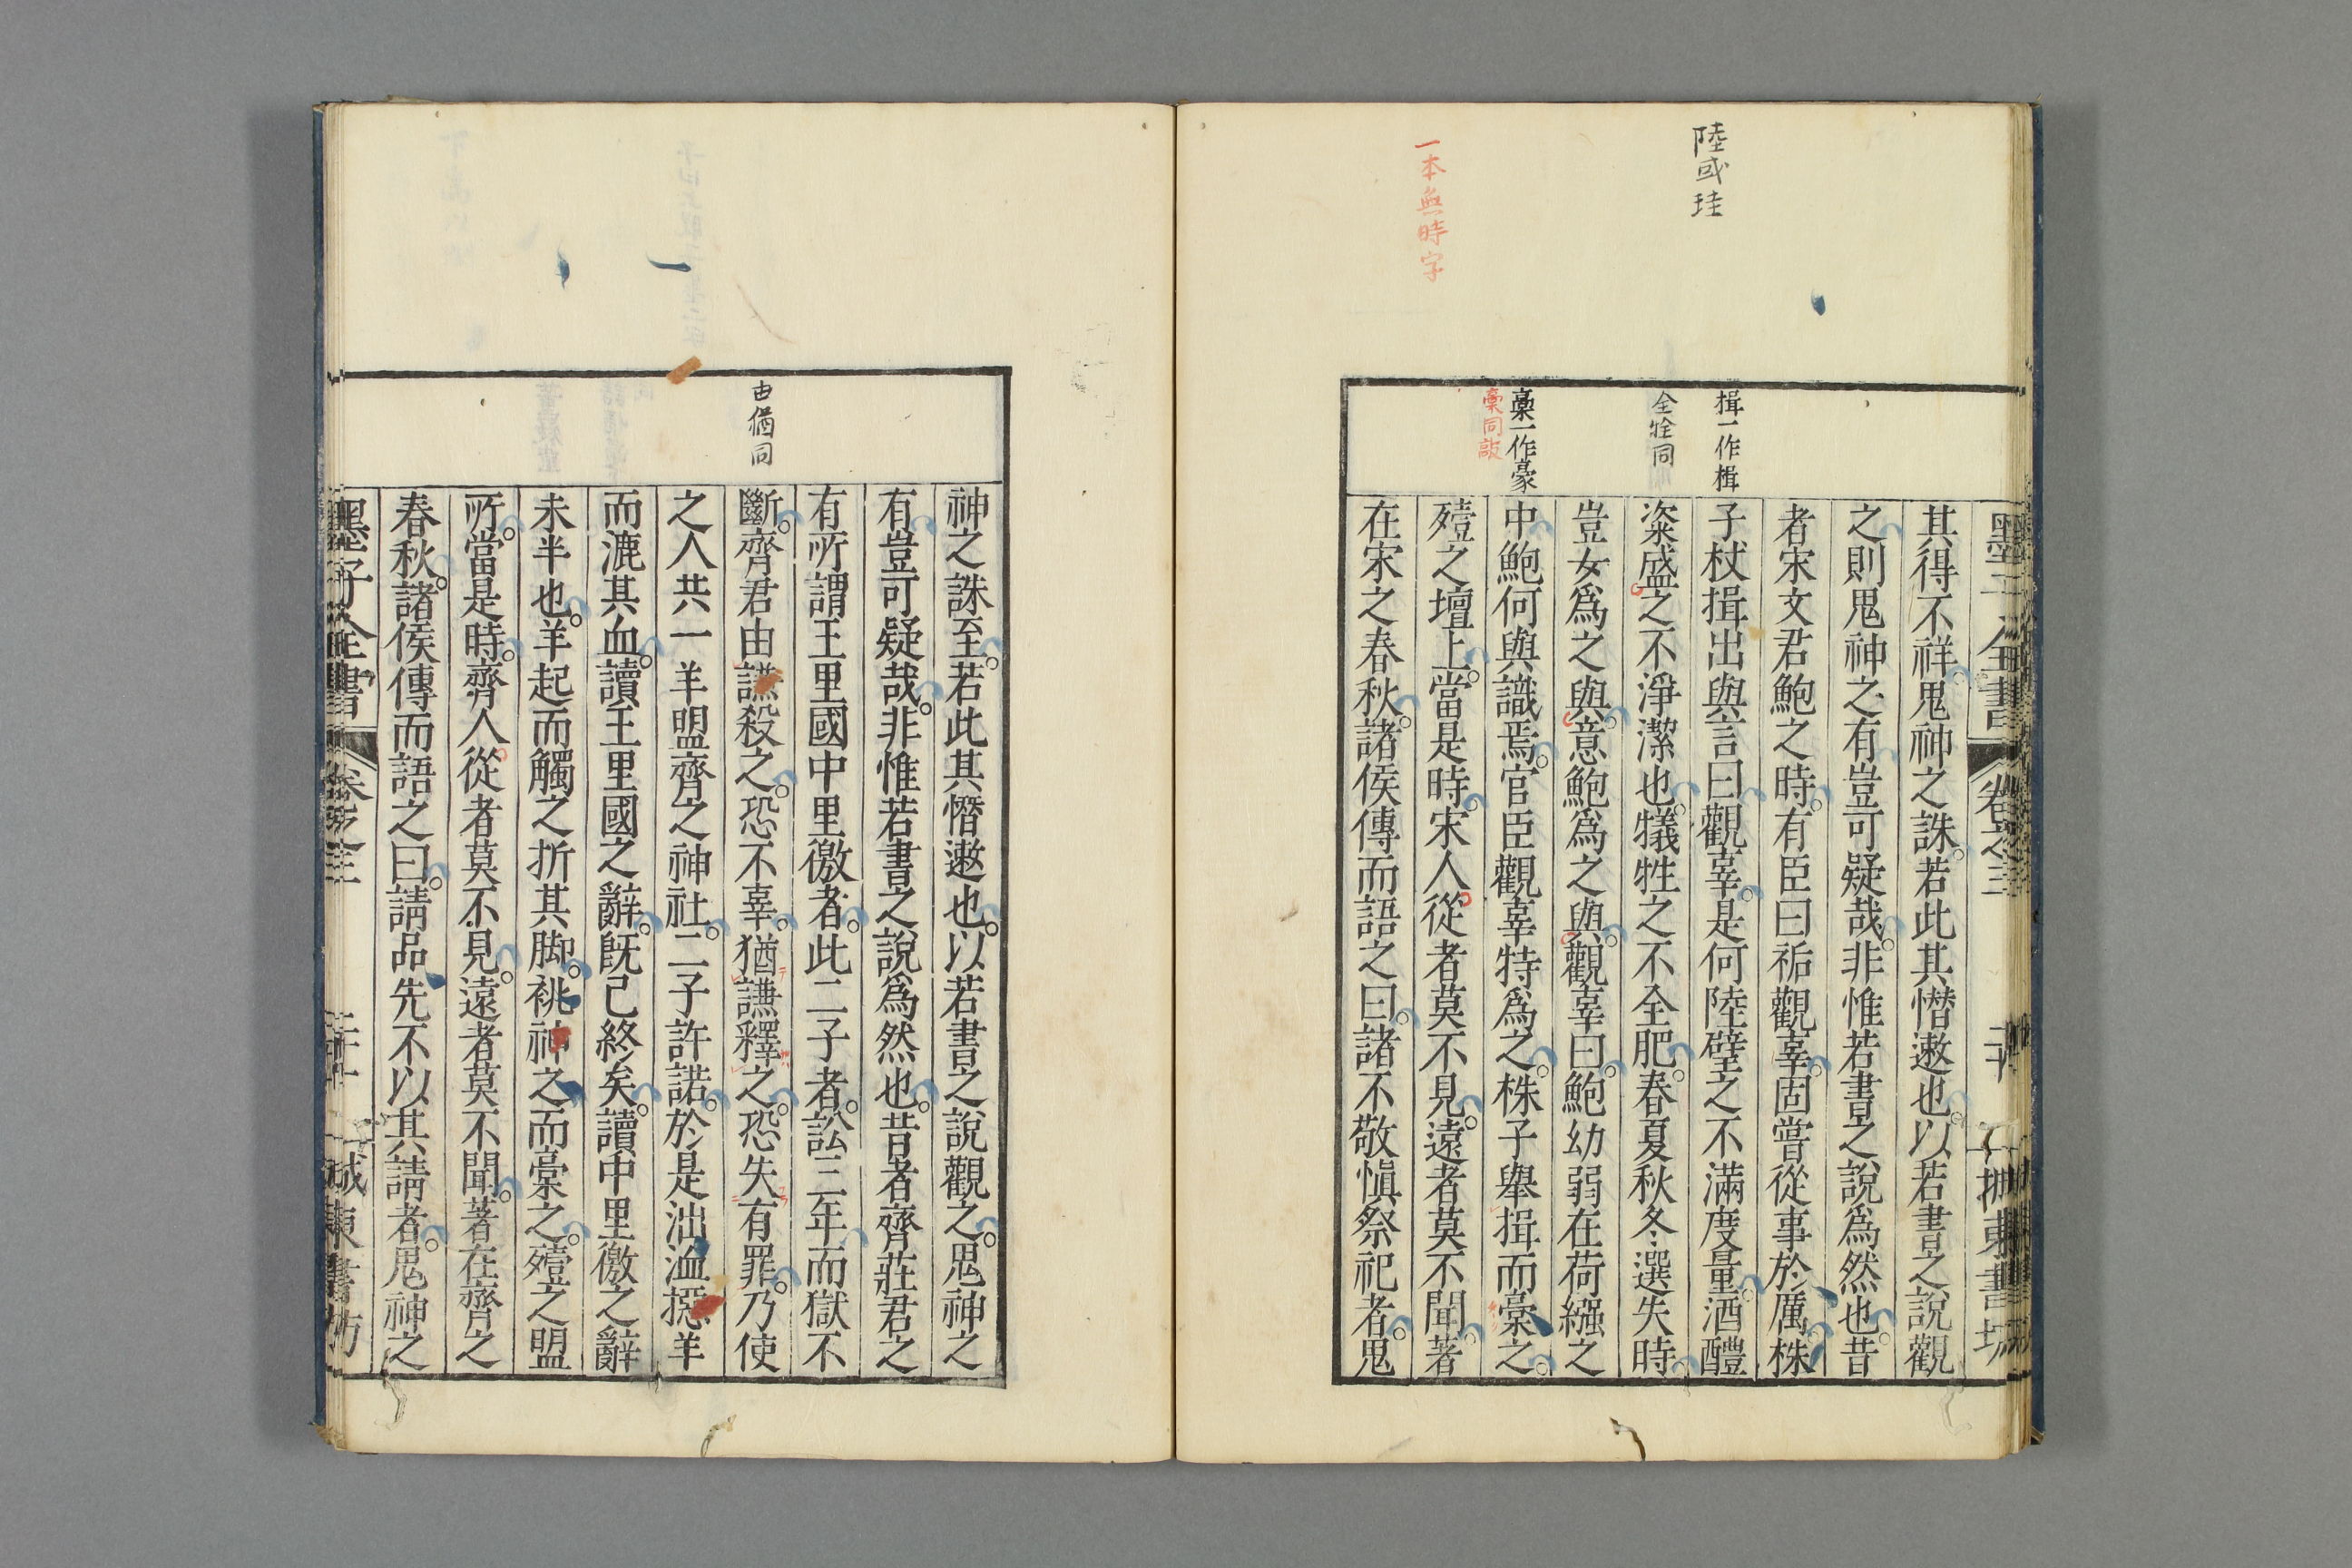 陸或珪
一本無時字
揖一作楫
全牷同
槀一作豪
槀同敲
其得不祥鬼神之誅。若此其憯遫也。以若書之說觀
之則鬼神之有豈可疑哉。非惟若書之說爲然也。昔
者宋文君鮑之時。有臣曰祏觀辜。固嘗從事於厲株
子杖揖出與言曰觀辜。是何陸璧之不滿度量。酒醴
粢盛之不淨潔也。犠牲之不全肥。春夏秋冬選失時。
豈女爲之與。意鮑爲之與。觀辜曰。鮑幼弱在荷繈之
中鮑何與識焉。官臣觀辜特爲之。株子舉揖而槀之。
殪之壇上。當是時。宋人從者莫不見。遠者莫不聞著
在宋之春秋。諸侯傳而語之曰。諸不敬愼祭祀者。鬼
由猶同
神之誅至。若此其憯遫也。以若書之說觀之。鬼神之
有豈可疑哉。非惟若書之說爲然也。昔者齊莊君之
有所謂王里國中里徼者。此二子者。訟三年而獄不
斷。齊君由謙殺之。恐不辜。猶謙釋之。恐失有罪。乃使
之人共一羊盟齊之神社。二子許諾。於是泏洫㧢羊
而漉其血。讀王里國之辭。旣已終矣。讀中里徼之辭
未半也。羊起而觸之折其脚。祧神之而槀之。殪之盟
所。當是時。齊人從者莫不見。遠者莫不聞。著在齊之
春秋。諸侯傳而語之曰。請品先不以其請者。鬼神之
墨子全書 卷之三
城東書坊